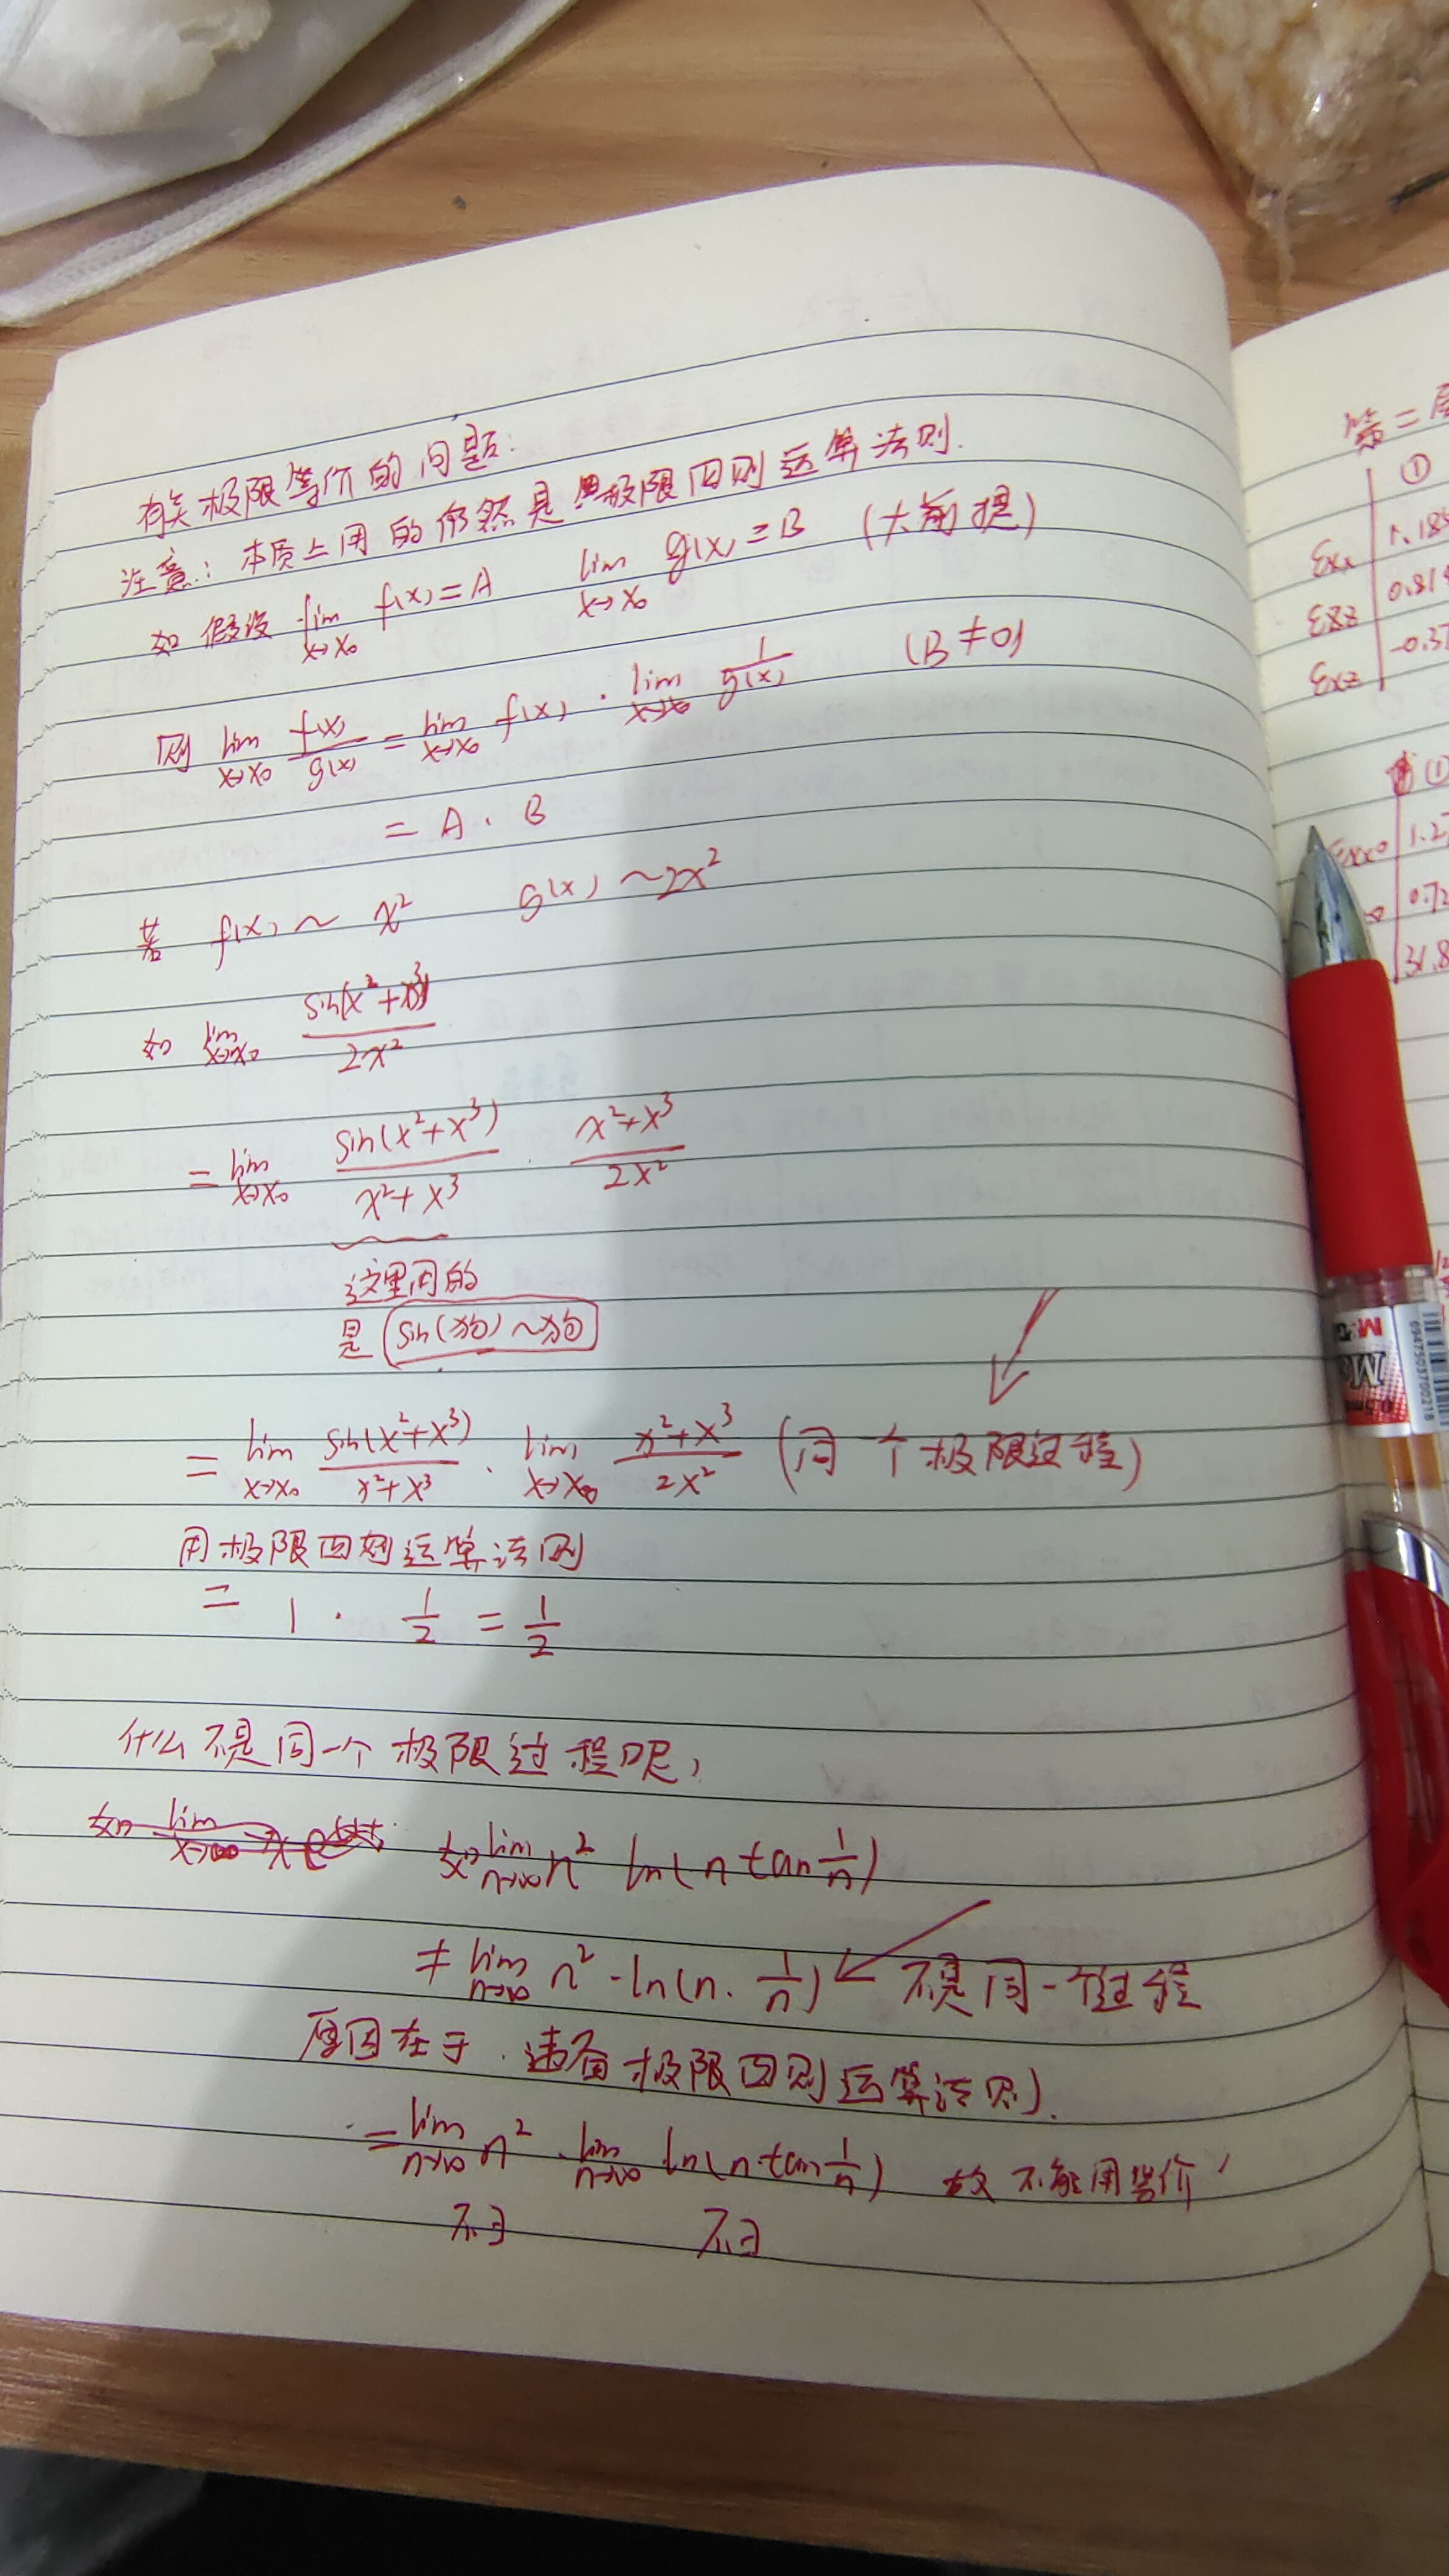 有关极限等价的问题:
注意: 本质上用的仍然是极限四则运算法则.
如 假设 lim x→x₀ f(x) = A lim x→x₀ g(x) = B (大前提)
则 lim x→x₀ f(x)/g(x) = lim x→x₀ f(x) · lim x→x₀ 1/g(x) (B≠0)
= A · B
若 f(x) ~ x² g(x) ~ 2x²
如 lim x→x₀ sin(x²+x³)/2x²
= lim x→x₀ sin(x²+x³)/x²+x³ · x²+x³/2x²
这里用的
是 sin(狗)~狗
= lim x→x₀ sin(x²+x³)/x²+x³ · lim x→x₀ x²+x³/2x² (同一个极限过程)
用极限四则运算法则
= 1 · 1/2 = 1/2
什么不是同一个极限过程呢,
如 lim n→∞ n² ln(n tan 1/n)
≠ lim n→∞ n² · ln(n · 1/n) 不是同一个过程
原因在于, 违背极限四则运算法则).
= lim n→∞ n² · lim n→∞ ln(n·tan 1/n) 故不能用等价
第二
①
εxx 1.18
εzz 0.81
εxz -0.3
①
1.2
0.72
31.8
M